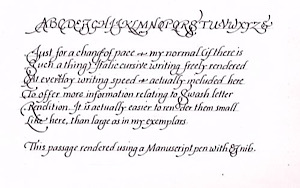 ABCDEFGHIJKLMNOPQRSTUVWXYZ&
Just for a change of pace ~ my normal (if there is
such a thing) Italic cursive writing freely rendered
At everyday writing speed ~ actually included here
To offer more information relating to Swash letter
Rendition. It is actually easier to render them small
Like here, than large as in my exemplars.
This passage rendered using a Manuscript pen with nib.